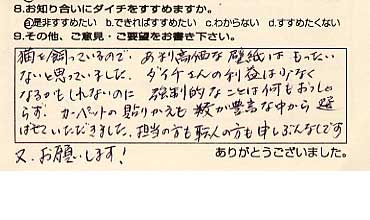 8.お知り合いにダイチをすすめますか。
ⓐ是非すすめたい b.できればすすめたい c.わからない d.すすめたくない
9.その他、ご意見・ご要望をお書き下さい。
猫を飼っているので、あまり高価な壁紙はもったい
ないと思っていました。ダイチさんの利益は少なく
なるかもしれないのに 強制的なことは何もおっしゃ
らず、カーペットの貼りかえも数が豊富な中から選
ばせていただきました。担当の方も職人の方も申しぶんなしです
又、お願いします!
ありがとうございました。